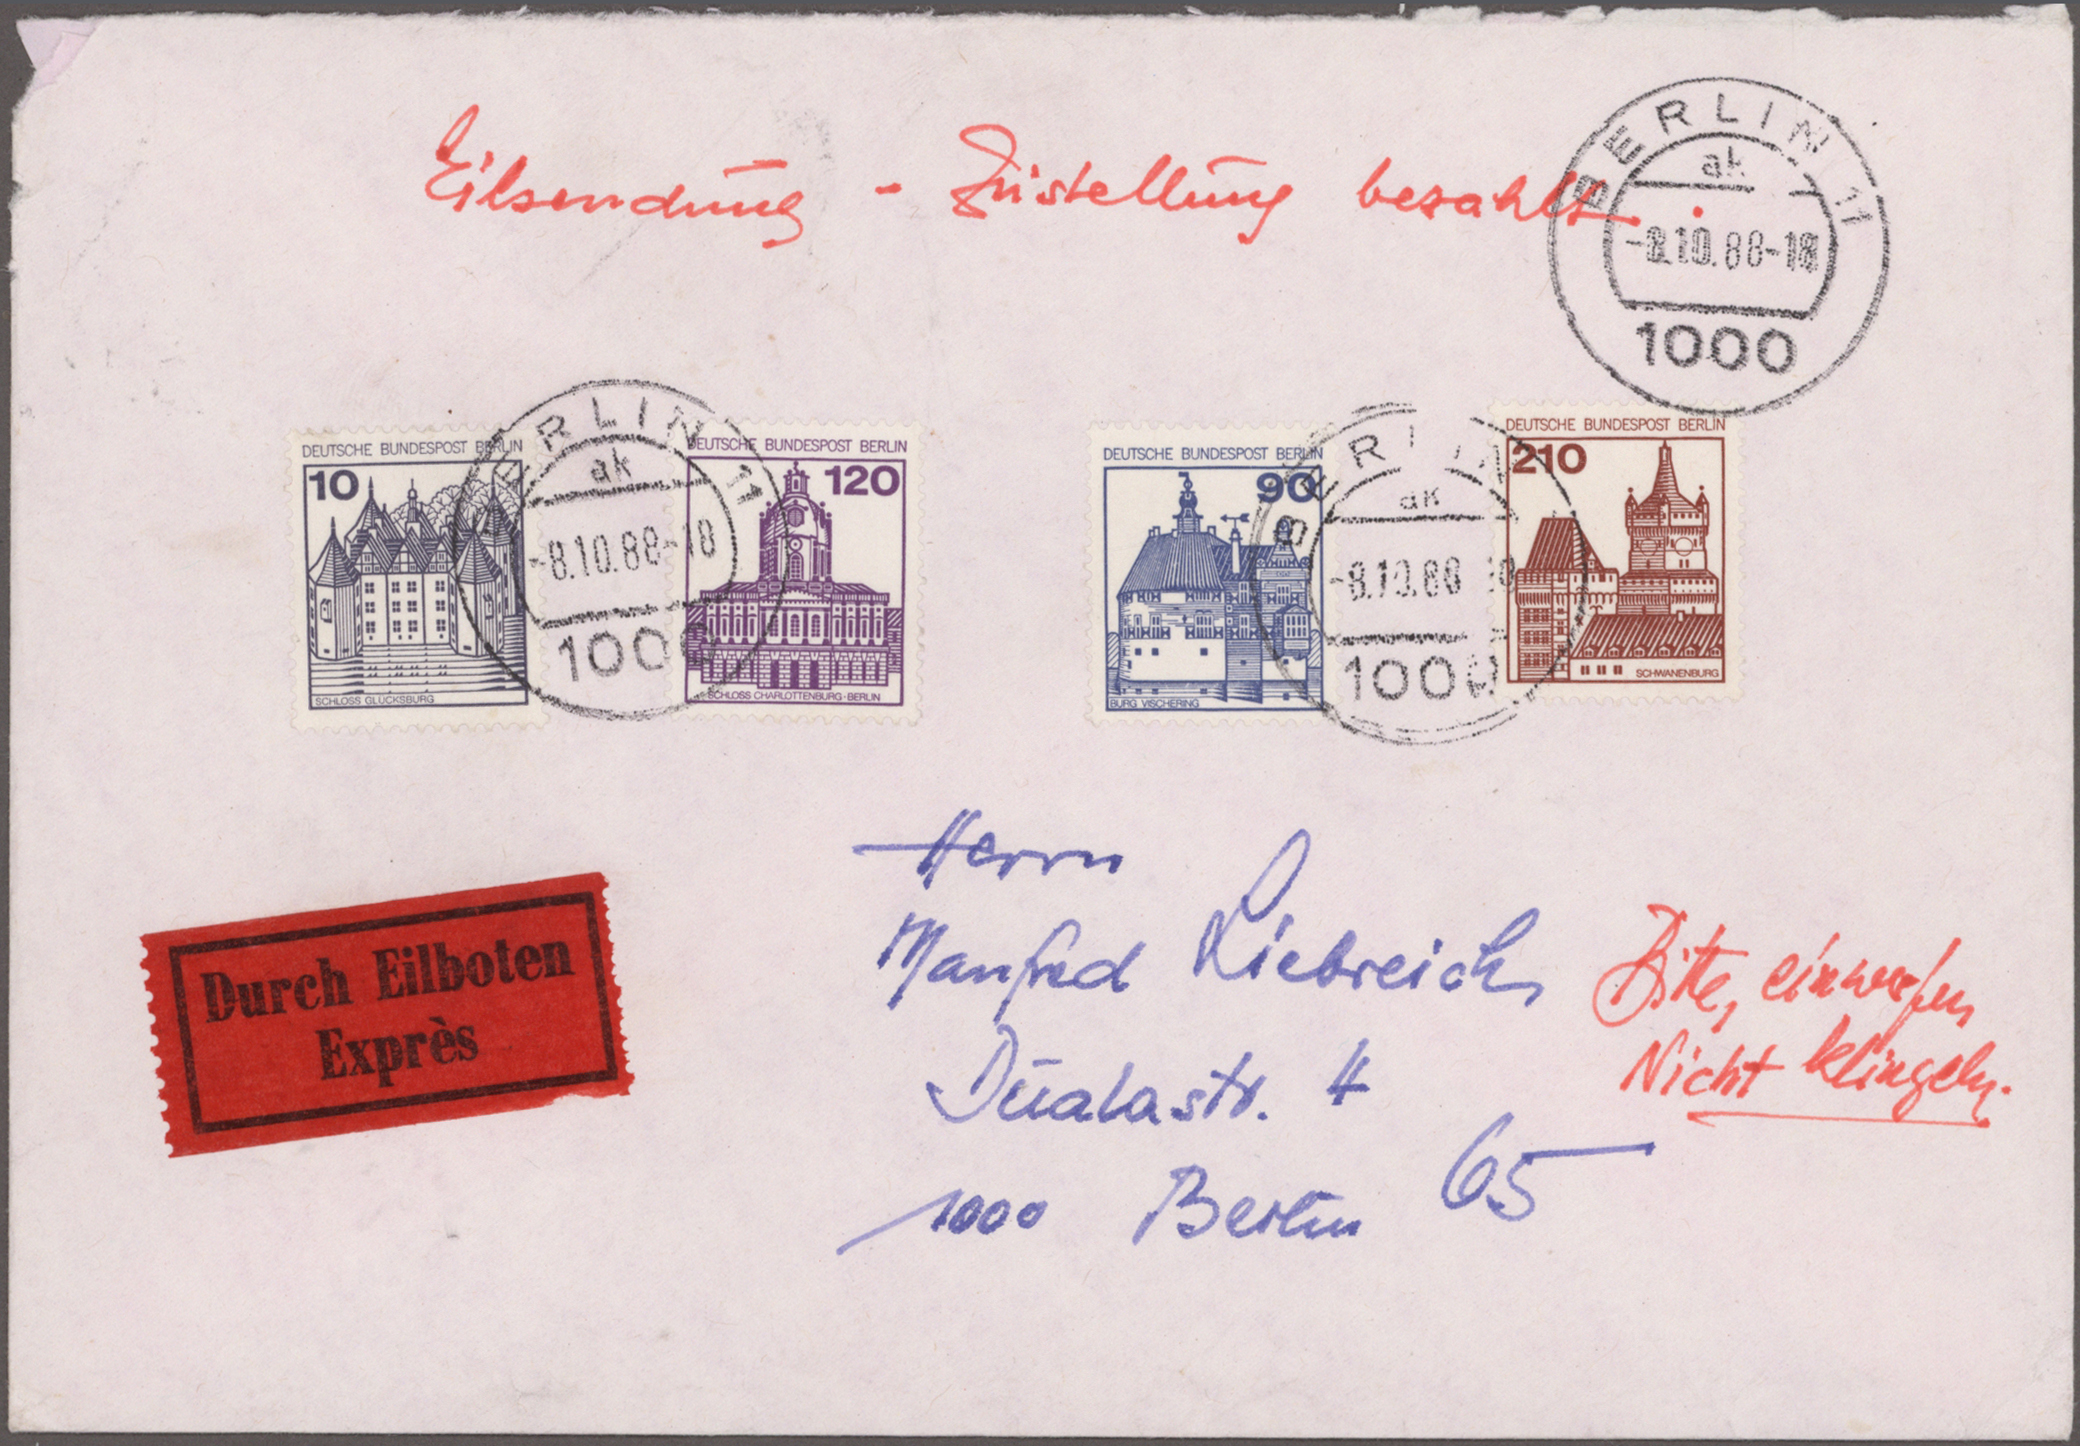 Eilsendung - Zustellung bezahlt.
BERLIN 11
ak
-8.10.88-18
1000
DEUTSCHE BUNDESPOST BERLIN
10
SCHLOSS GLÜCKSBURG
BERLIN 11
ak
-8.10.88-18
1000
DEUTSCHE BUNDESPOST BERLIN
120
SCHLOSS CHARLOTTENBURG·BERLIN
DEUTSCHE BUNDESPOST BERLIN
90
BURG VISCHERING
BERLIN
ak
-8.10.88
1000
DEUTSCHE BUNDESPOST BERLIN
210
SCHWANENBURG
Durch Eilboten
Exprès
Herrn
Manfred Liebreich
Dualastr. 4
1000 Berlin 65
Bitte, einwerfen
Nicht klingeln.